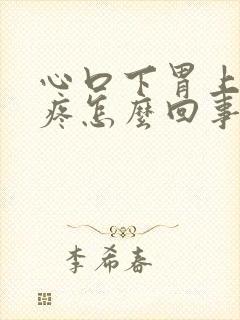 心口下胃上
疼怎麼回事
李希春